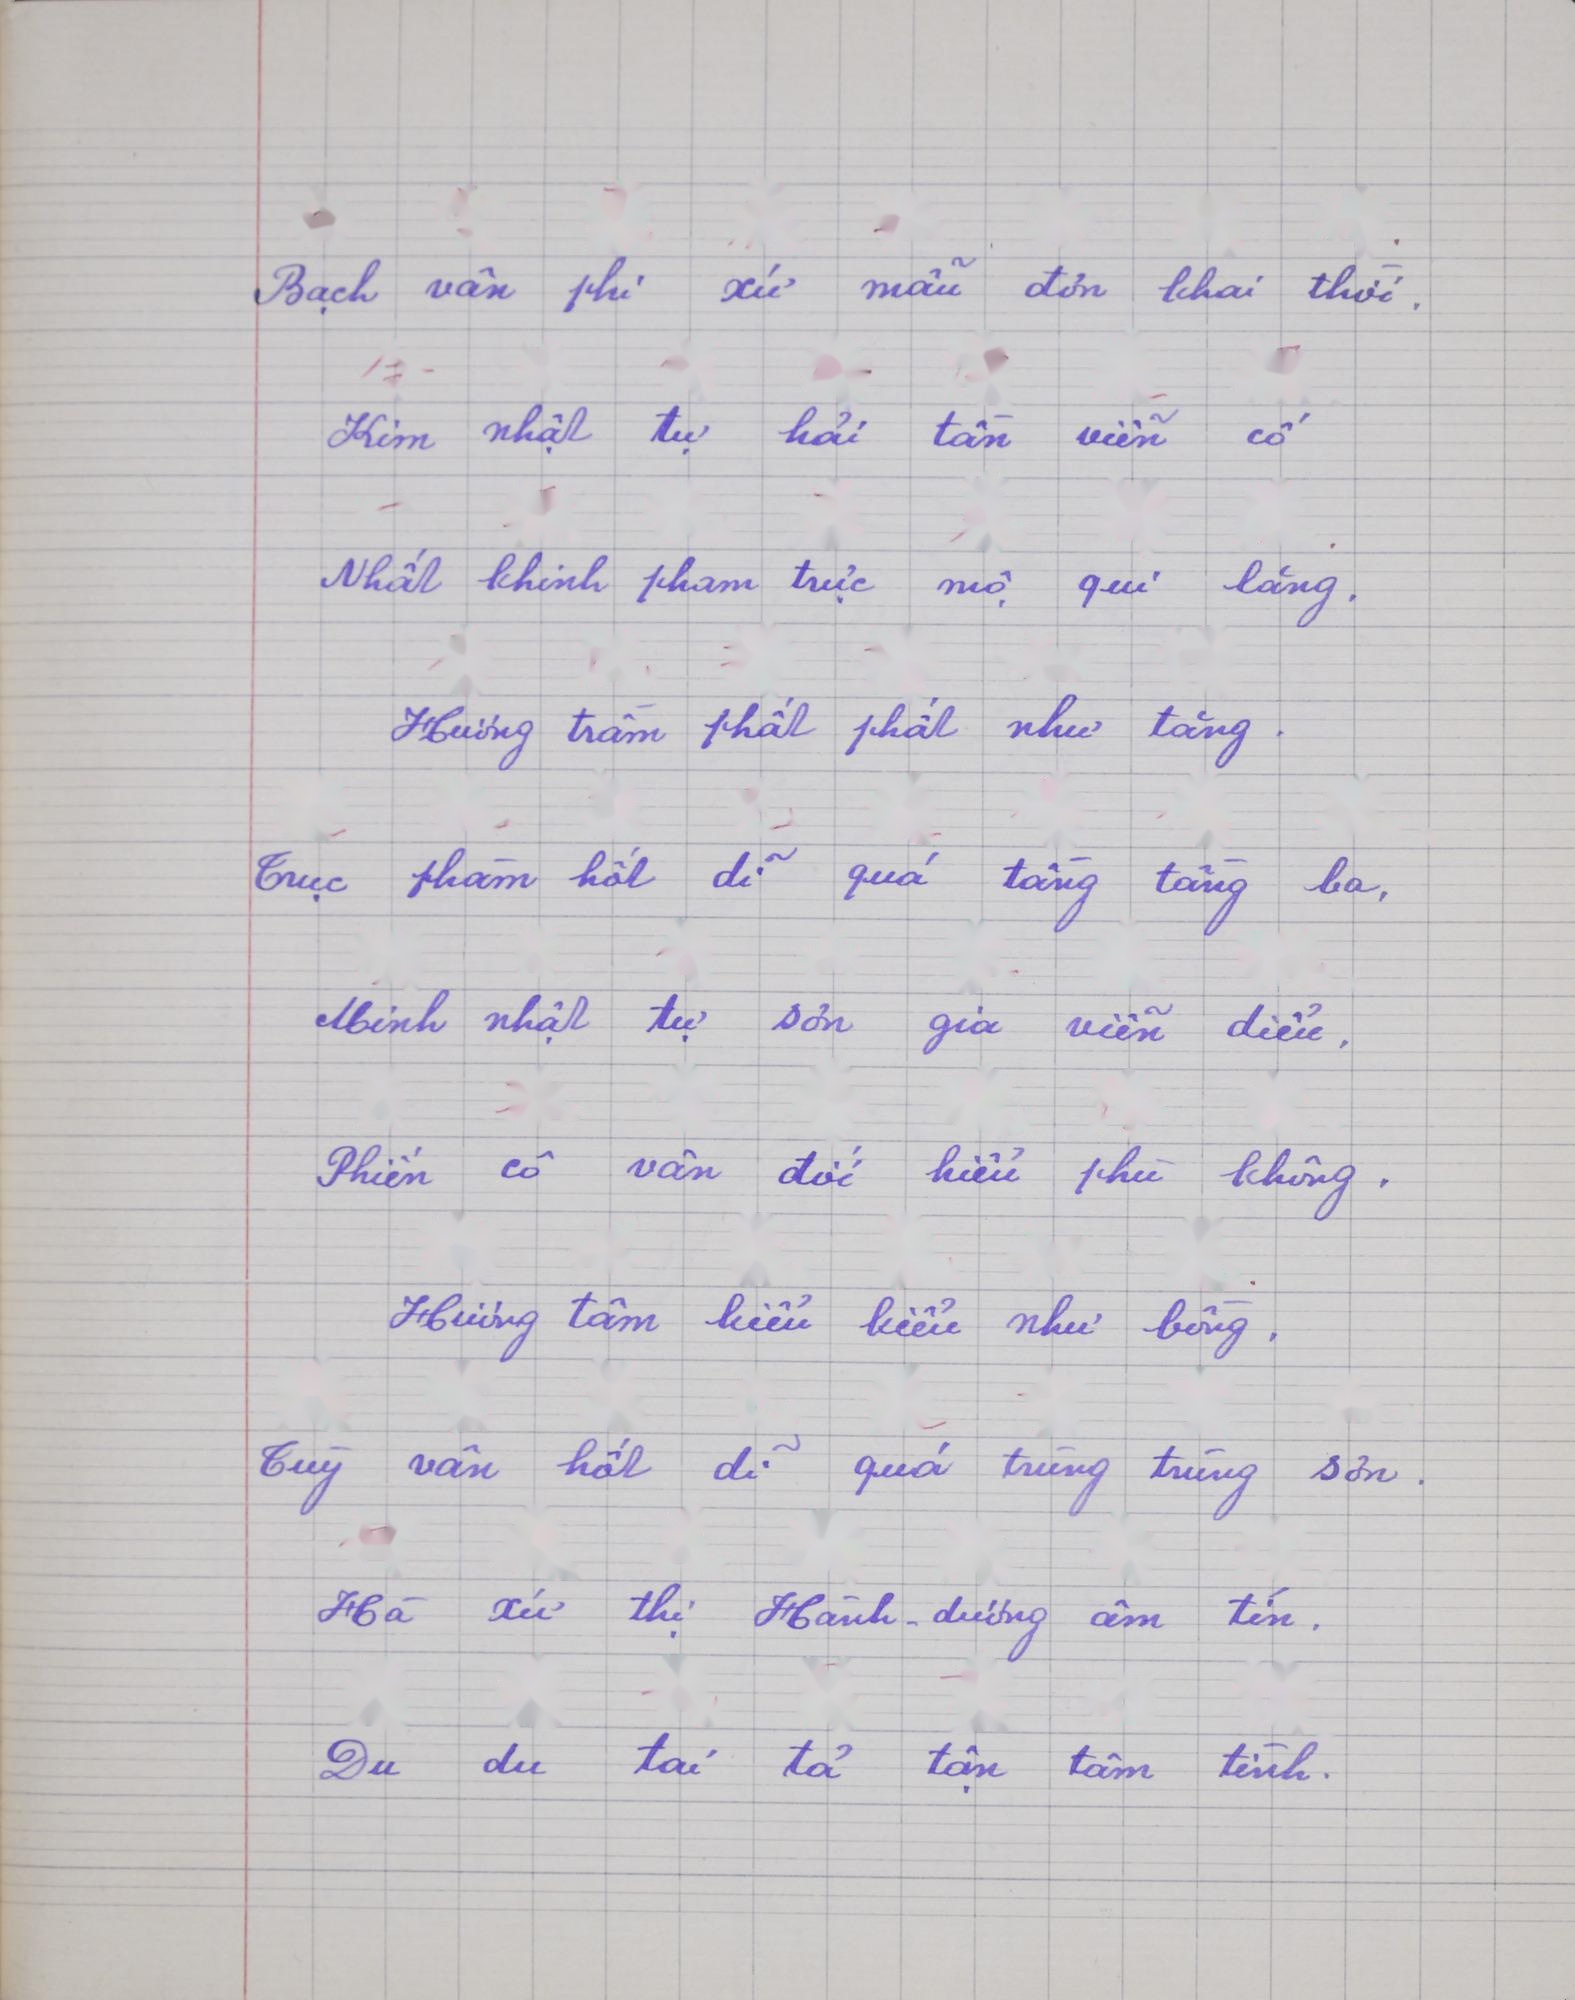 Bạch vân phi xứ mẫu đơn khai thời.
Kim nhật tự hải tần viễn cố
Nhất khinh pham trực mộ qui lăng.
Hương trầm phất phất như tăng.
Trục phàm hốt dĩ quá tầng tầng ba,
Minh nhật tự sơn gia viễn diểu,
Phiến cô vân đối hiểu phù không.
Hương tâm kiểu kiểu như bồng,
Tuỳ vân hốt dĩ quá trùng trùng sơn.
Hà xứ thị Hành-dương âm tín.
Du du tai tả tận tâm tình.